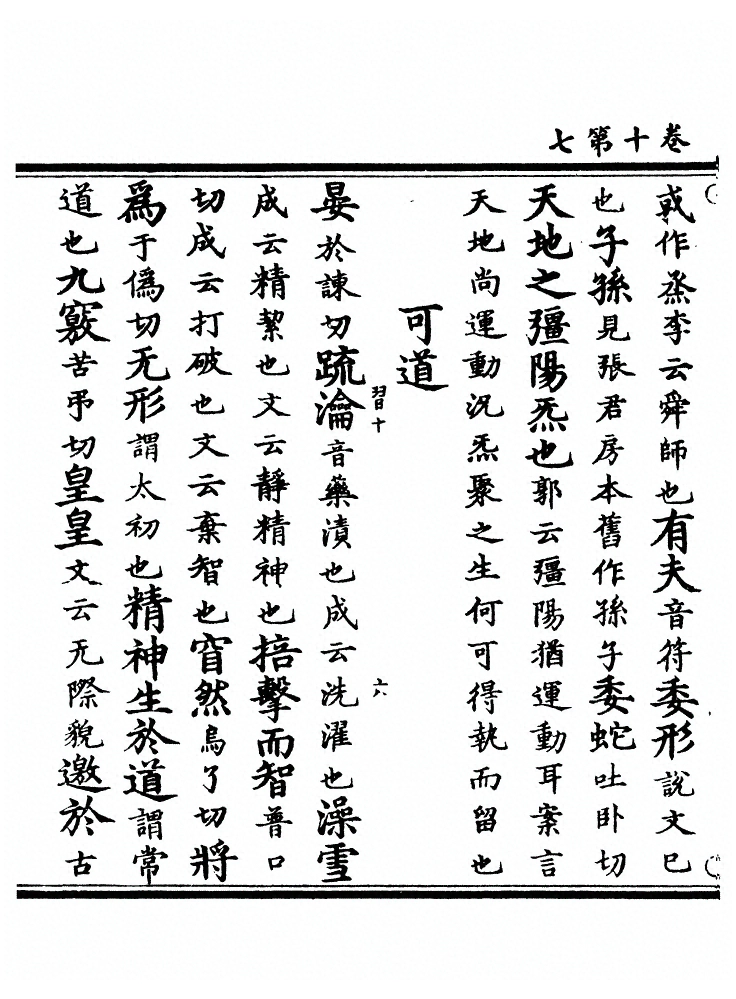 卷十第七
或作烝李云舜師也有夫音符委形說文巳
也子孫見張君房本舊作孫子委蛇吐卧切
天地之彊陽炁也郭云彊陽猶運動耳案言
天地尚運動況炁聚之生何可得執而留也
可道
習十
六
晏於諫切疏瀹音藥漬也成云洗濯也澡雪
成云精絜也文云靜精神也掊擊而智普口
切成云打破也文云棄智也窅然烏了切將
為于偽切无形謂太初也精神生於道謂常
道也九竅苦弔切皇皇文云无際貌邀於古